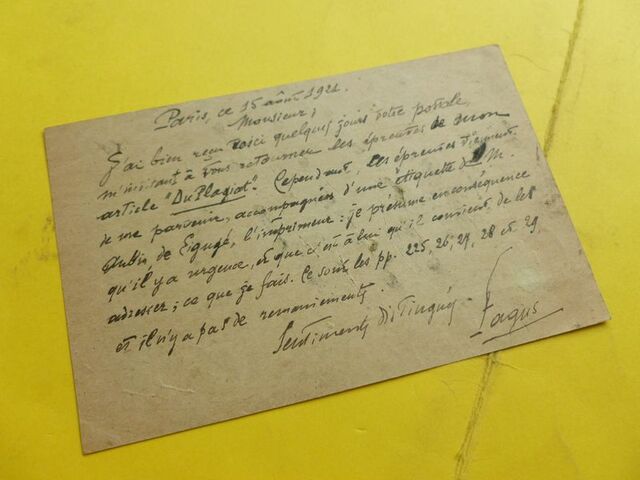 Paris, ce 15 août 1921.
Monsieur,
J'ai bien reçu voici quelques jours votre postale,
m'invitant à vous retourner les épreuves de mon
article "Du Plagiat". Cependant, les épreuves viennent
de me parvenir, accompagnées d'une étiquette de M.
Aubin de Ligugé, l'imprimeur : je présume en conséquence
qu'il y a urgence, et que c'est à lui qu'il convient de les
adresser ; ce que je fais. Ce sont les pp. 225, 26, 27, 28 et 29,
et il n'y a pas de remaniements.
Sentiments distingués.
Fagus